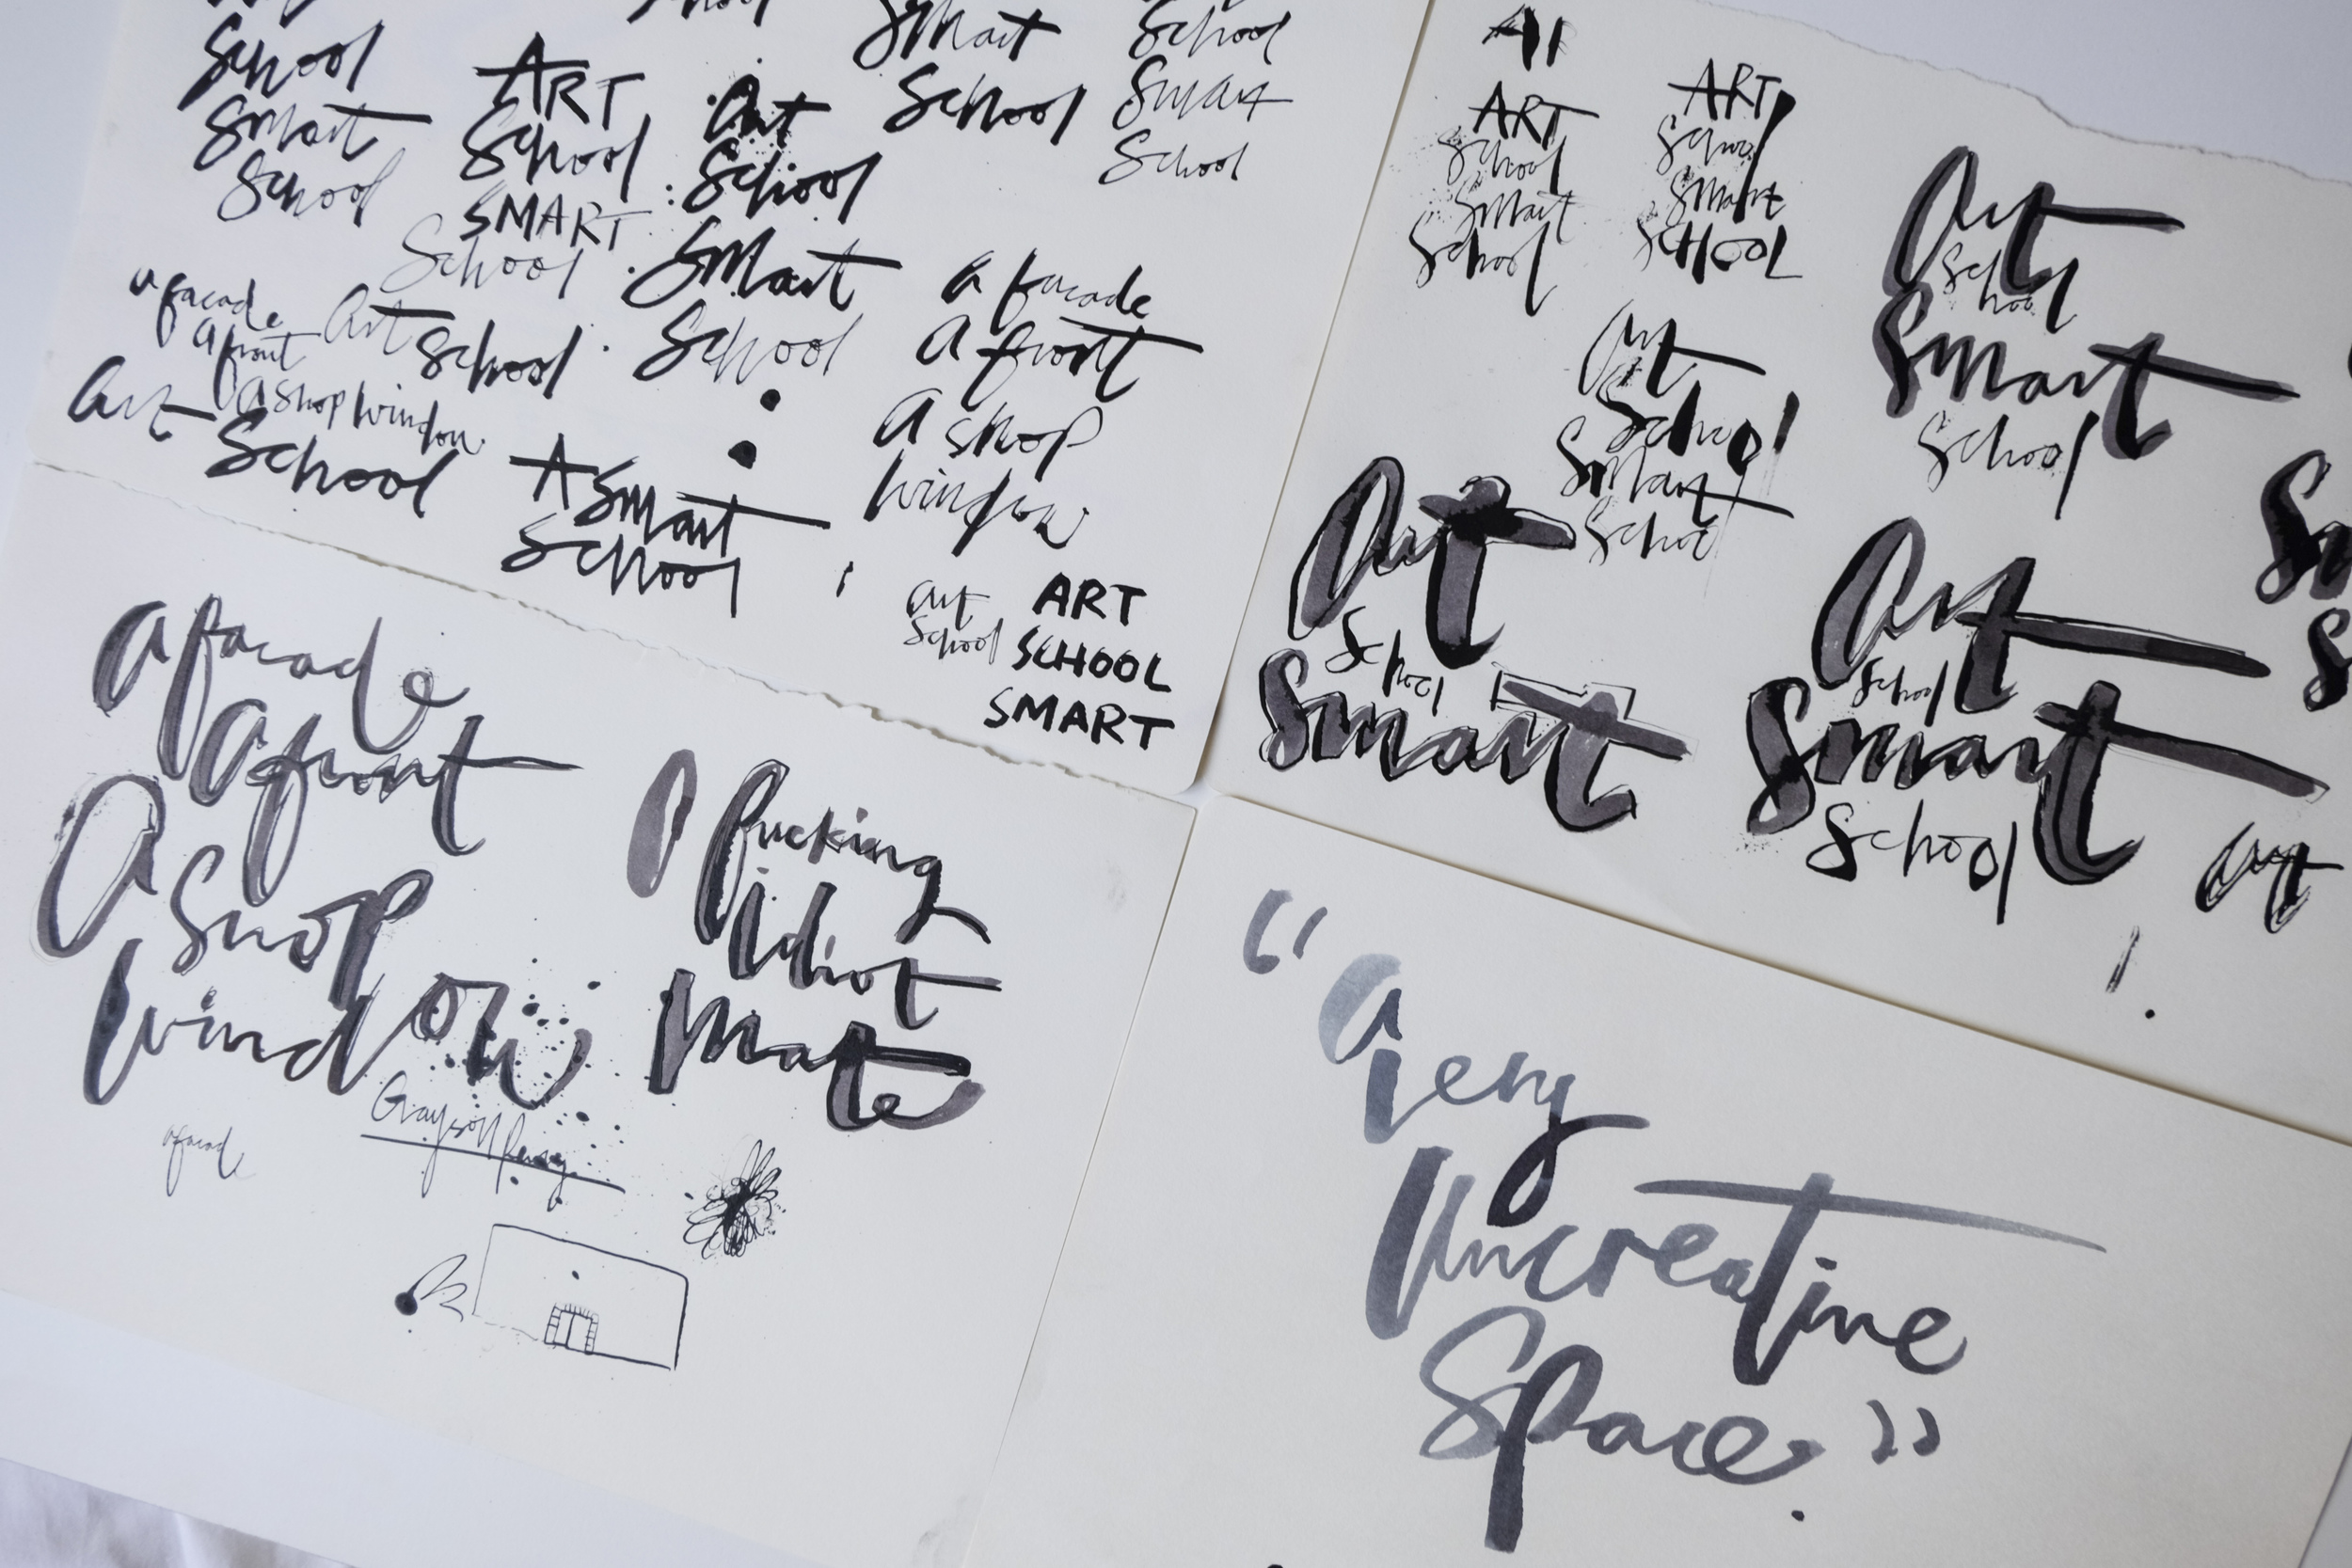 School
Smart
School
ART
School
SMART
School
Art
School
Smart
School
Smart
School
School
Smart
School
a facade
a front
a shop window
Art School
Art
School
A Smart
School
a facade
a front
A shop
window
art
School
ART
SCHOOL
SMART
ART
School
Smart
School
ART
School
Smart
SCHOOL
Art
School
Smart
School
Art
School
Smart
School
Art
School
Smart
Art
School
Smart
School
Art
a facade
a front
A Shop
Window
Grayson Perry
a facade
A fucking
Idiot
Mate
“A
Very
Uncreative
Space”